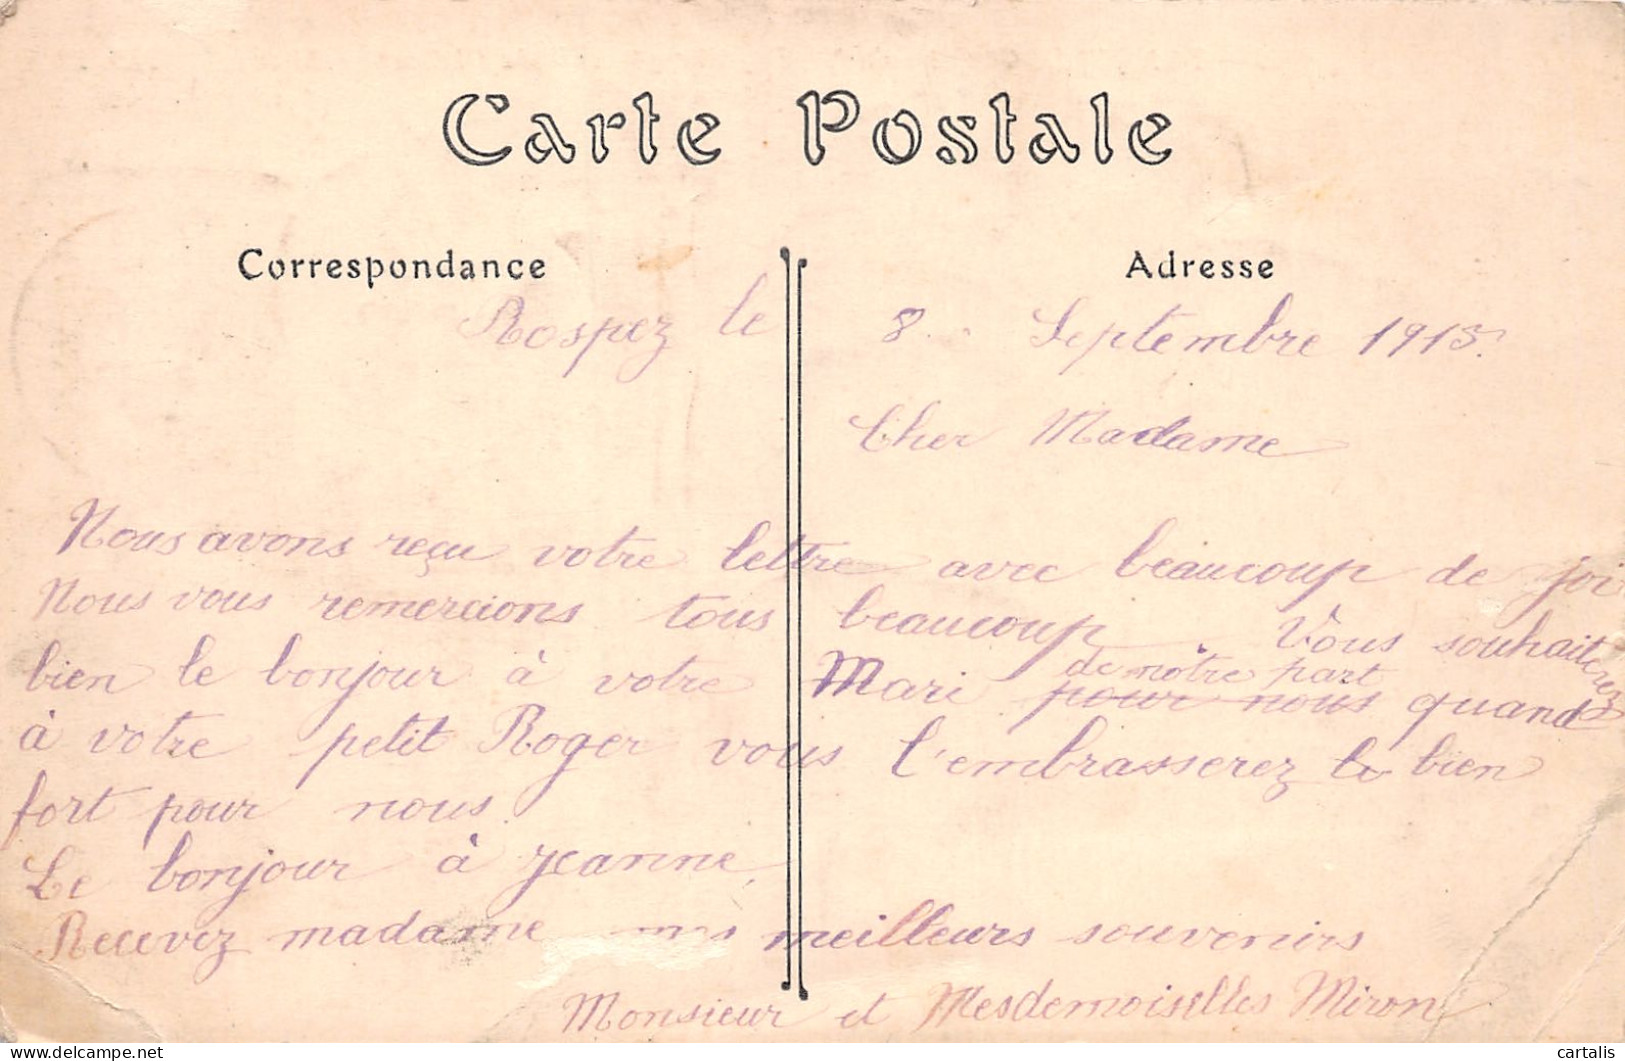 Carte Postale
Correspondance
Adresse
Rospez le 8 Septembre 1915.
Cher Madame
Nous avons reçu votre lettre avec beaucoup de joi
Nous vous remercions tous beaucoup Vous souhaiterez
bien le bonjour à votre Mari pour nous de nôtre part quand
à votre petit Roger vous l'embrasserez le bien
fort pour nous.
Le bonjour à Jeanne,
Recevez madame mes meilleurs souvenirs
Monsieur et Mesdemoiselles Miron
delcampe.net
cartalis